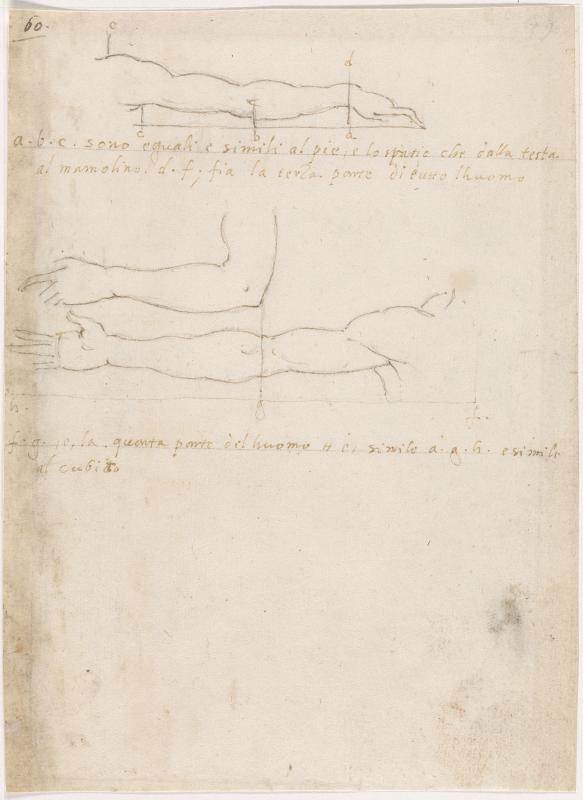 60.
49
c
d
c b a
a. b. c. sono equali e simili al pie, e lo spatio che dalla testa
al mamolino. d. f; fia la terza. parte di tutto lhuomo
h. g f.
f. g. e, la. quarta parte del huomo et e, simile a. g. h. e simile
al cubito